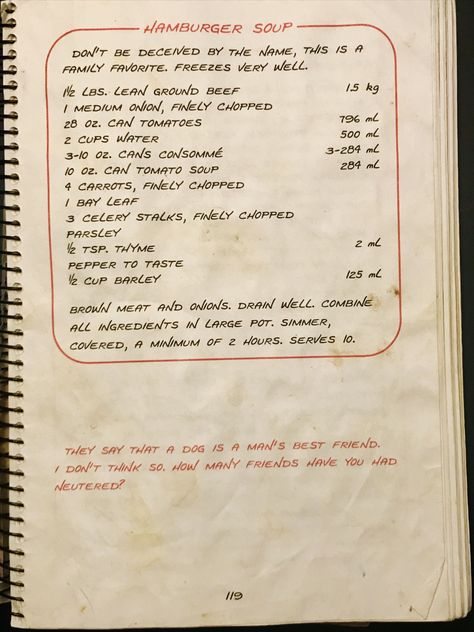 HAMBURGER SOUP
DON'T BE DECEIVED BY THE NAME, THIS IS A
FAMILY FAVORITE. FREEZES VERY WELL.
1½ LBS. LEAN GROUND BEEF 1.5 kg
1 MEDIUM ONION, FINELY CHOPPED
28 OZ. CAN TOMATOES 796 mL
2 CUPS WATER 500 mL
3-10 OZ. CANS CONSOMMÉ 3-284 mL
10 OZ. CAN TOMATO SOUP 284 mL
4 CARROTS, FINELY CHOPPED
1 BAY LEAF
3 CELERY STALKS, FINELY CHOPPED
PARSLEY
½ TSP. THYME 2 mL
PEPPER TO TASTE
½ CUP BARLEY 125 mL
BROWN MEAT AND ONIONS. DRAIN WELL. COMBINE
ALL INGREDIENTS IN LARGE POT. SIMMER,
COVERED, A MINIMUM OF 2 HOURS. SERVES 10.
THEY SAY THAT A DOG IS A MAN'S BEST FRIEND.
I DON'T THINK SO. HOW MANY FRIENDS HAVE YOU HAD
NEUTERED?
119